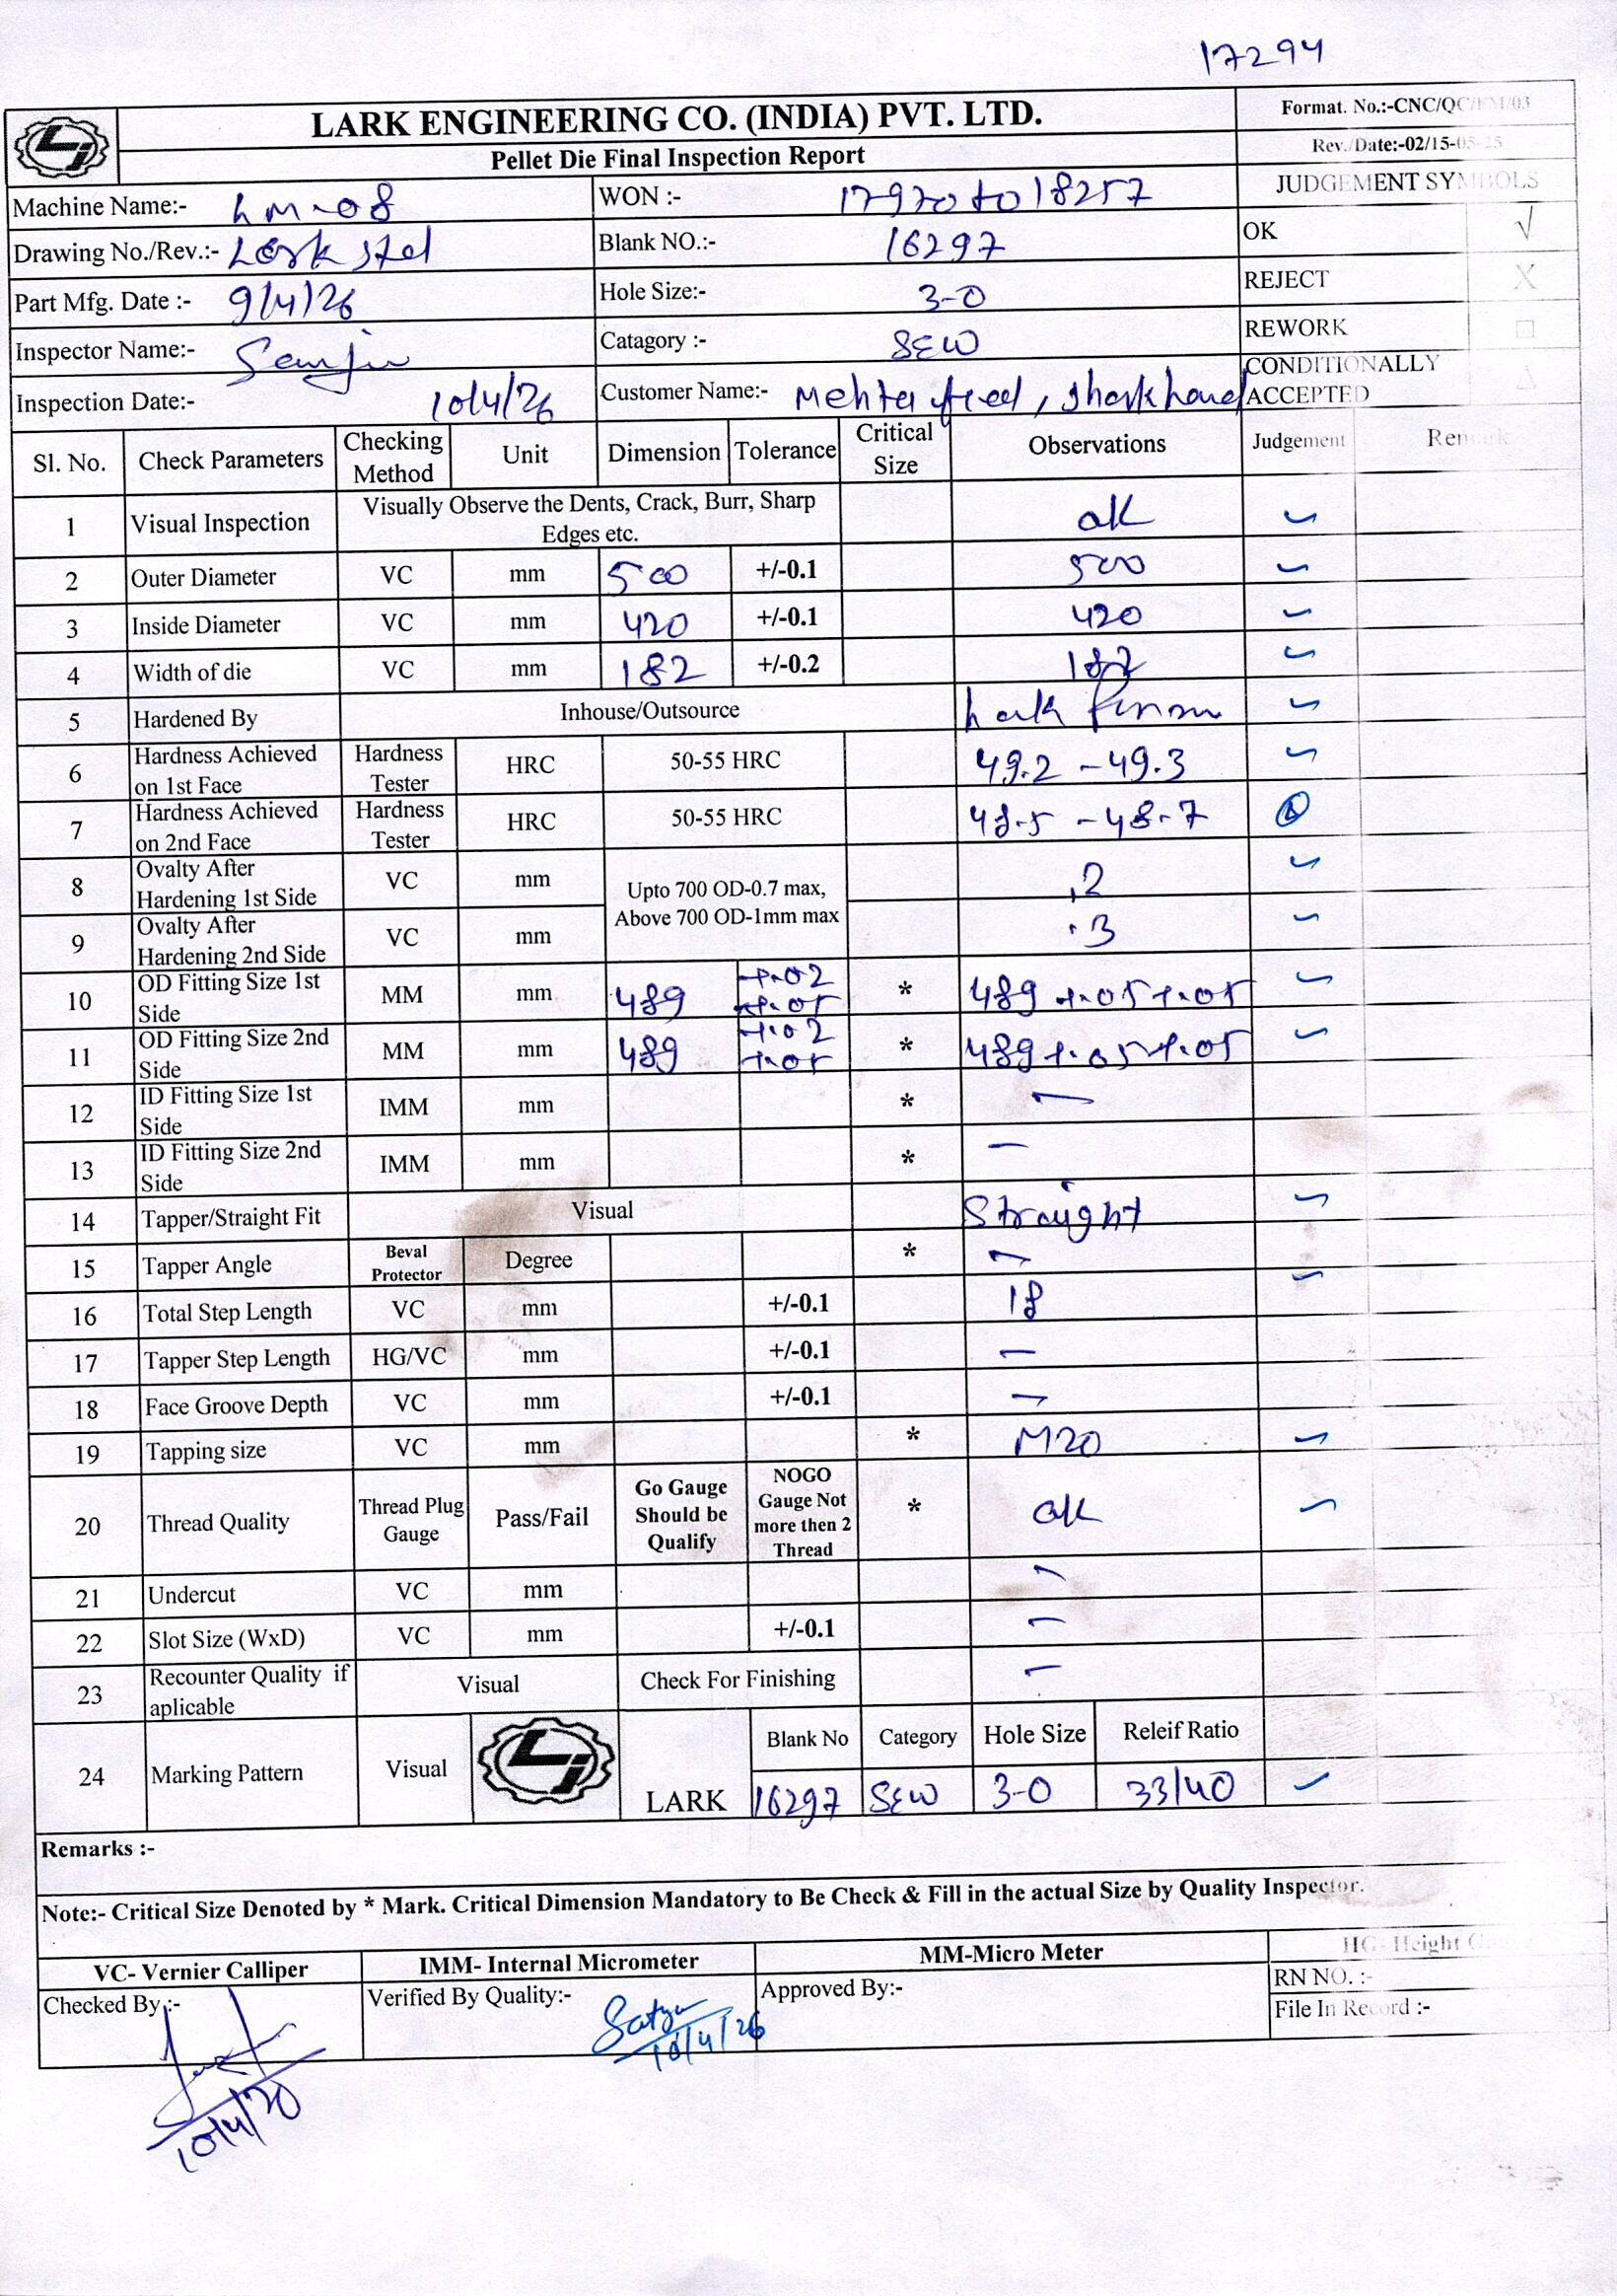 17294
LARK ENGINEERING CO. (INDIA) PVT. LTD.
Pellet Die Final Inspection Report
Format. No.:-CNC/QC/FM/03
Rev./Date:-02/15-05-25
JUDGEMENT SYMBOLS
Machine Name:- LM-08 WON :- 17970 to 18257
Drawing No./Rev.:- Lark std Blank NO.:- 16297 OK √
Part Mfg. Date :- 9/4/26 Hole Size:- 3-0 REJECT X
Inspector Name:- Catagory :- SEW REWORK □
Inspection Date:- 10/4/26 Customer Name:- Mehta feed, Jharkhand CONDITIONALLY ACCEPTED △
Sl. No. Check Parameters Checking Method Unit Dimension Tolerance Critical Size Observations Judgement Remark
1 Visual Inspection Visually Observe the Dents, Crack, Burr, Sharp Edges etc. ok ✓
2 Outer Diameter VC mm 500 +/-0.1 500 ✓
3 Inside Diameter VC mm 420 +/-0.1 420 ✓
4 Width of die VC mm 182 +/-0.2 182 ✓
5 Hardened By Inhouse/Outsource Lark ✓
6 Hardness Achieved on 1st Face Hardness Tester HRC 50-55 HRC 49.2 - 49.3 ✓
7 Hardness Achieved on 2nd Face Hardness Tester HRC 50-55 HRC 48.5 - 48.7
8 Ovalty After Hardening 1st Side VC mm Upto 700 OD-0.7 max, Above 700 OD-1mm max .2 ✓
9 Ovalty After Hardening 2nd Side VC mm .3 ✓
10 OD Fitting Size 1st Side MM mm 489 +.02 +.05 * 489 +.05 +.05 ✓
11 OD Fitting Size 2nd Side MM mm 489 +.02 +.05 * 489 +.05 +.05 ✓
12 ID Fitting Size 1st Side IMM mm * —
13 ID Fitting Size 2nd Side IMM mm * —
14 Tapper/Straight Fit Visual Straight ✓
15 Tapper Angle Beval Protector Degree * —
16 Total Step Length VC mm +/-0.1 18 ✓
17 Tapper Step Length HG/VC mm +/-0.1 —
18 Face Groove Depth VC mm +/-0.1 —
19 Tapping size VC mm * M20 ✓
20 Thread Quality Thread Plug Gauge Pass/Fail Go Gauge Should be Qualify NOGO Gauge Not more then 2 Thread * ok ✓
21 Undercut VC mm —
22 Slot Size (WxD) VC mm +/-0.1 —
23 Recounter Quality if aplicable Visual Check For Finishing —
24 Marking Pattern Visual LARK Blank No Category Hole Size Releif Ratio
16297 SEW 3-0 33/40 ✓
Remarks :-
Note:- Critical Size Denoted by * Mark. Critical Dimension Mandatory to Be Check & Fill in the actual Size by Quality Inspector.
VC- Vernier Calliper IMM- Internal Micrometer MM-Micro Meter HG- Height
Checked By :- Verified By Quality:- Satya 10/4/26 Approved By:- RN NO. :-
File In Record :-
10/4/20